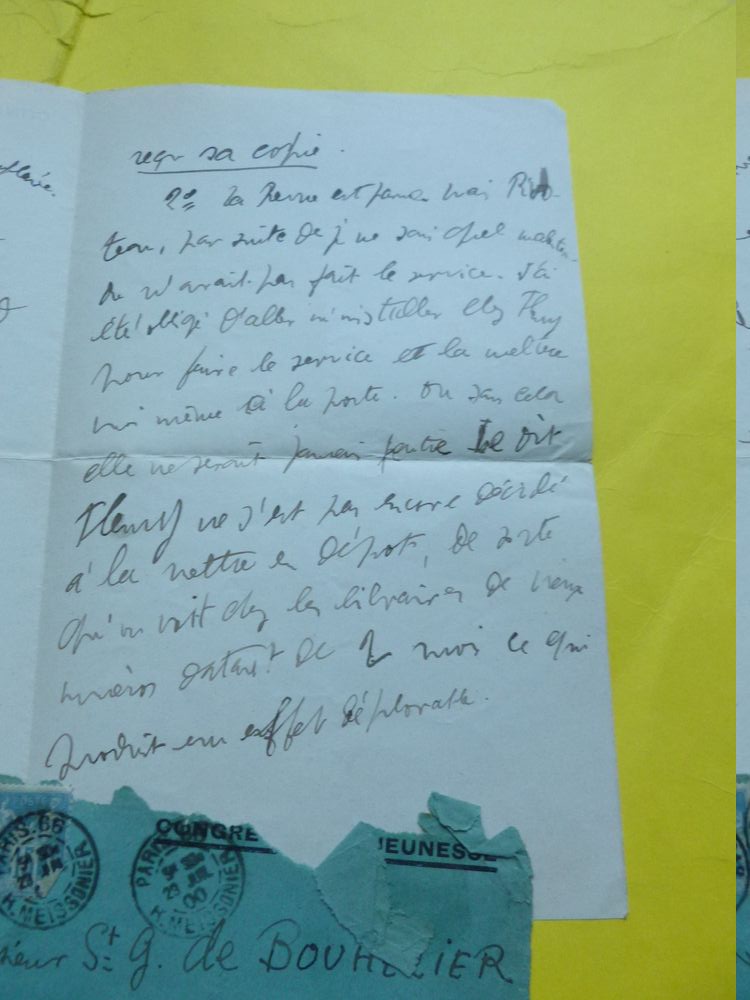 reçu sa copie.
2º La Revue est parue mais
teau, par suite de je ne sais quel
du n'avait pas fait le service. J'ai
été obligé d'aller m'installer chez Fleury
pour faire le service et la mettre
moi même à la poste. Ou sans cela
elle ne serait jamais partie Le dit
Fleury ne s'est pas encore décidé
à la mettre en dépôt, de sorte
qu'on voit chez les libraires de vieux
numéros datant de 2 mois ce qui
produit un effet déplorable.
CONGRE JEUNESSE
PARIS 66
R. MEISSONIER
PARIS
R. MEISSONIER
sieur St G. de BOUHELIER